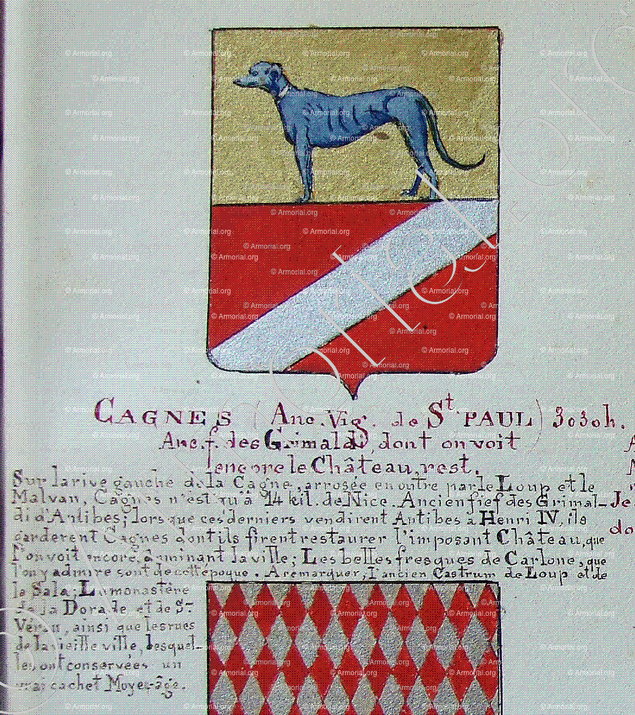 CAGNES (Anc. Vig. de St PAUL) 3030h.
Anc. f. des Grimaldi, dont on voit
encore le Château, rest.
Sur la rive gauche de la Cagne, arrosée en outre par le Loup et le
Malvan, Cagnes n'est qu'à 14 kil. de Nice. Ancien fief des Grimal-
di d'Antibes; lorsque ces derniers vendirent Antibes à Henri IV, ils
garderent Cagnes dont ils firent restaurer l'imposant Château, que
l'on voit encore, dominant la ville; Les belles fresques de Carlone, que
l'on y admire sont de cette époque. A remarquer; l'ancien Castrum de Loup et de
la Sala; La monastère
de la Dorade, et de St-
Véran, ainsi que les rues
de la vieille ville, lesquel-
les ont conservées un
vrai cachet Moyen-âge.
Je
do
© Armorial.org